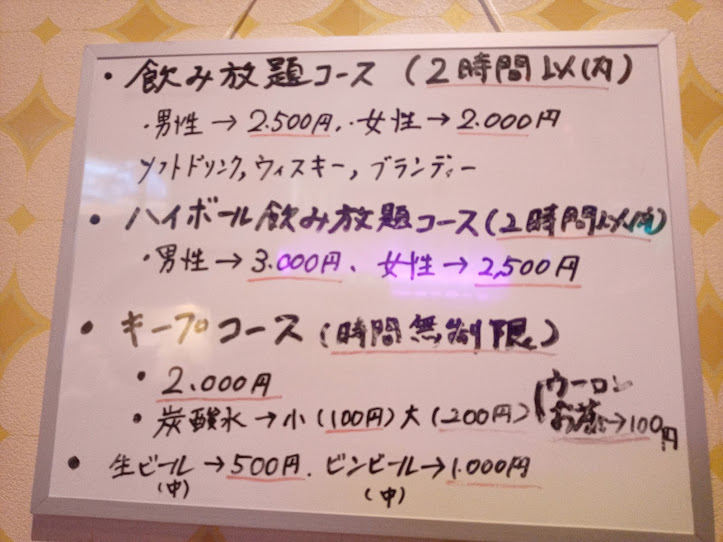 ・飲み放題コース (2時間以内)
・男性→2.500円.・女性→2.000円
ソフトドリンク,ウィスキー,ブランディー
・ハイボール飲み放題コース(2時間以内)
・男性→3.000円、女性→2,500円
・キープコース(時間無制限)
・2.000円
・炭酸水→小(100円)大(200円)
ウーロン
お茶→100円
・生ビール→500円.ビンビール→1.000円
(中) (中)